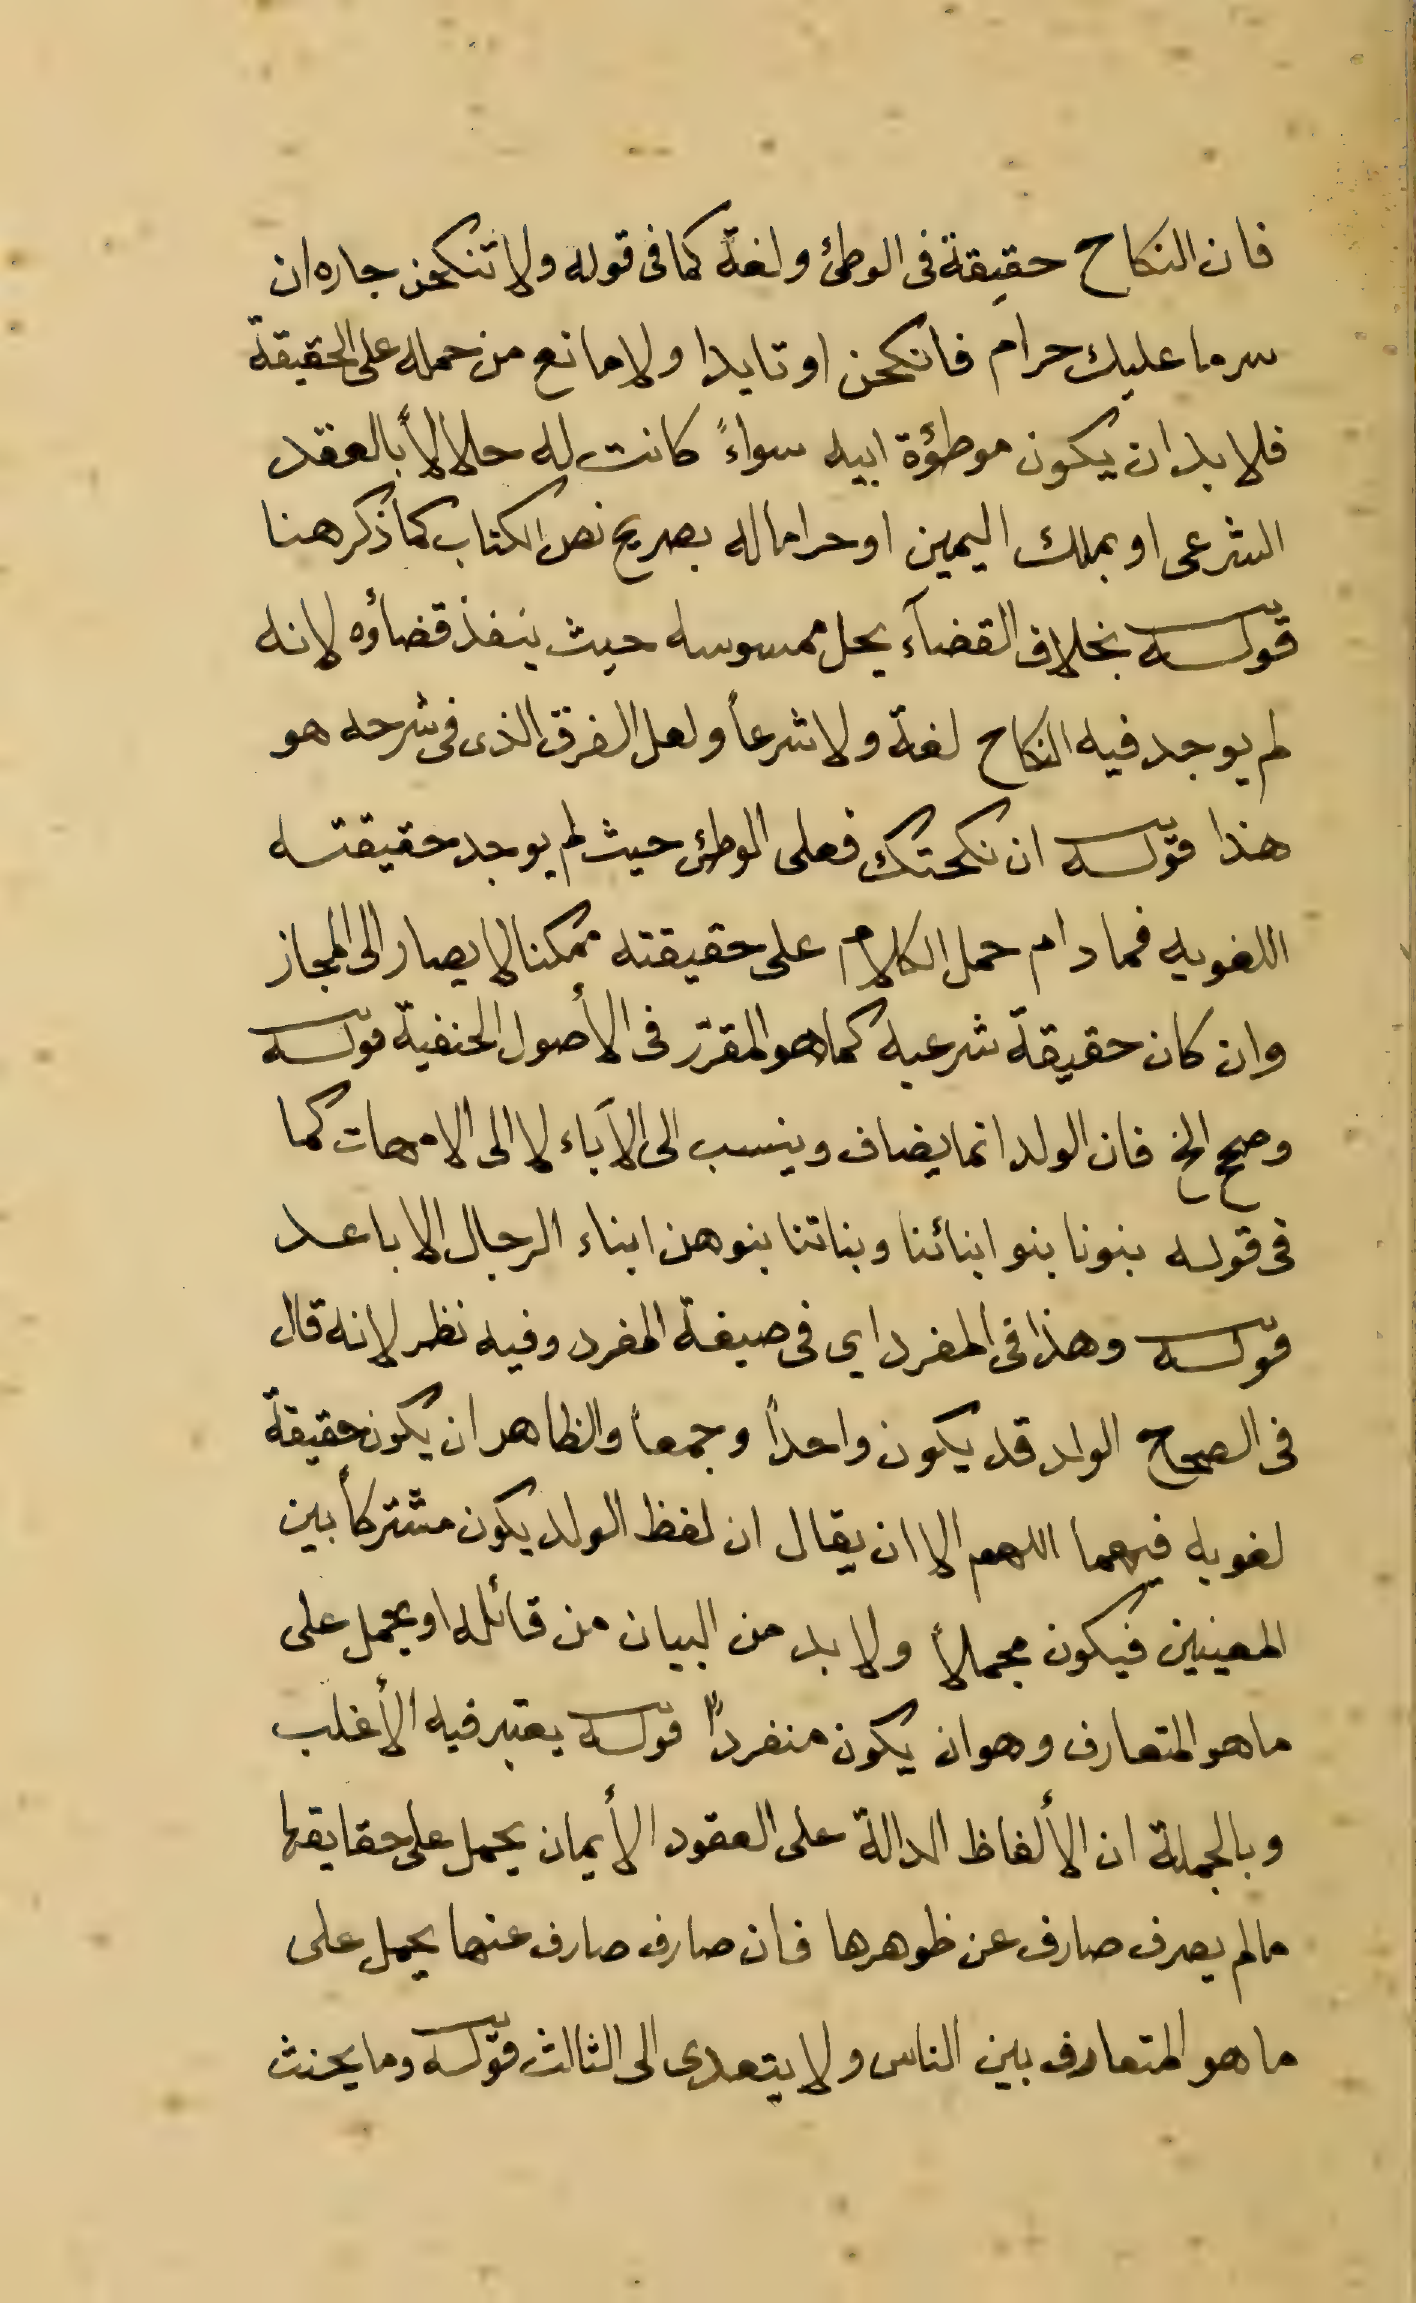 فان النكاح حقيقة فى الوطئ ولغة كما فى قوله ولا تنكحن جاره ان
سرما عليك حرام فانكحن او تابدا ولا مانع من حمله على الحقيقة
فلا بد ان يكون موطؤة ابيه سواءً كانت له حلالاً بالعقد
الشرعى او بملك اليمين او حراما له بصريح نص الكتاب كما ذكر هنا
قوله بخلاف القضآء بحل ممسوسه حيث ينفذ قضاؤه لانه
لم يوجد فيه النكاح لغة ولا شرعاً ولعل الفرق الذى فى شرحه هو
هذا قوله ان نكحتك فعلى الوطئ حيث لم يوجد حقيقته
اللغويه فما دام حمل الكلام على حقيقته ممكنا لا يصار الى المجاز
وان كان حقيقة شرعيه كما هو المقرّر فى الأصول الحنفية قوله
وصح الخ فان الولد انما يضاف وينسب الى الآباء لا الى الامهات كما
فى قوله بنونا بنو ابنائنا وبناتنا بنوهن ابناء الرجال الاباعد
قوله وهذا فى المفرد اي فى صيغة المفرد وفيه نظر لانه قال
فى الصحاح الولد قد يكون واحداً وجمعاً والظاهر ان يكون حقيقة
لغويه فيهما اللهم الا ان يقال ان لفظ الولد يكون مشتركاً بين
المعنيين فيكون مجملاً ولا بد من البيان من قائله او يحمل على
ما هو المتعارف وهو ان يكون منفرداً قوله يعتبر فيه الأغلب
وبالجملة ان الألفاظ الدالة على العقود الأيمان يحمل على حقايقها
ما لم يصرف صارف عن ظوهرها فان صارف صارف عنها يحمل على
ما هو المتعارف بين الناس ولا يتعدى الى الثالث قوله وما يحنث